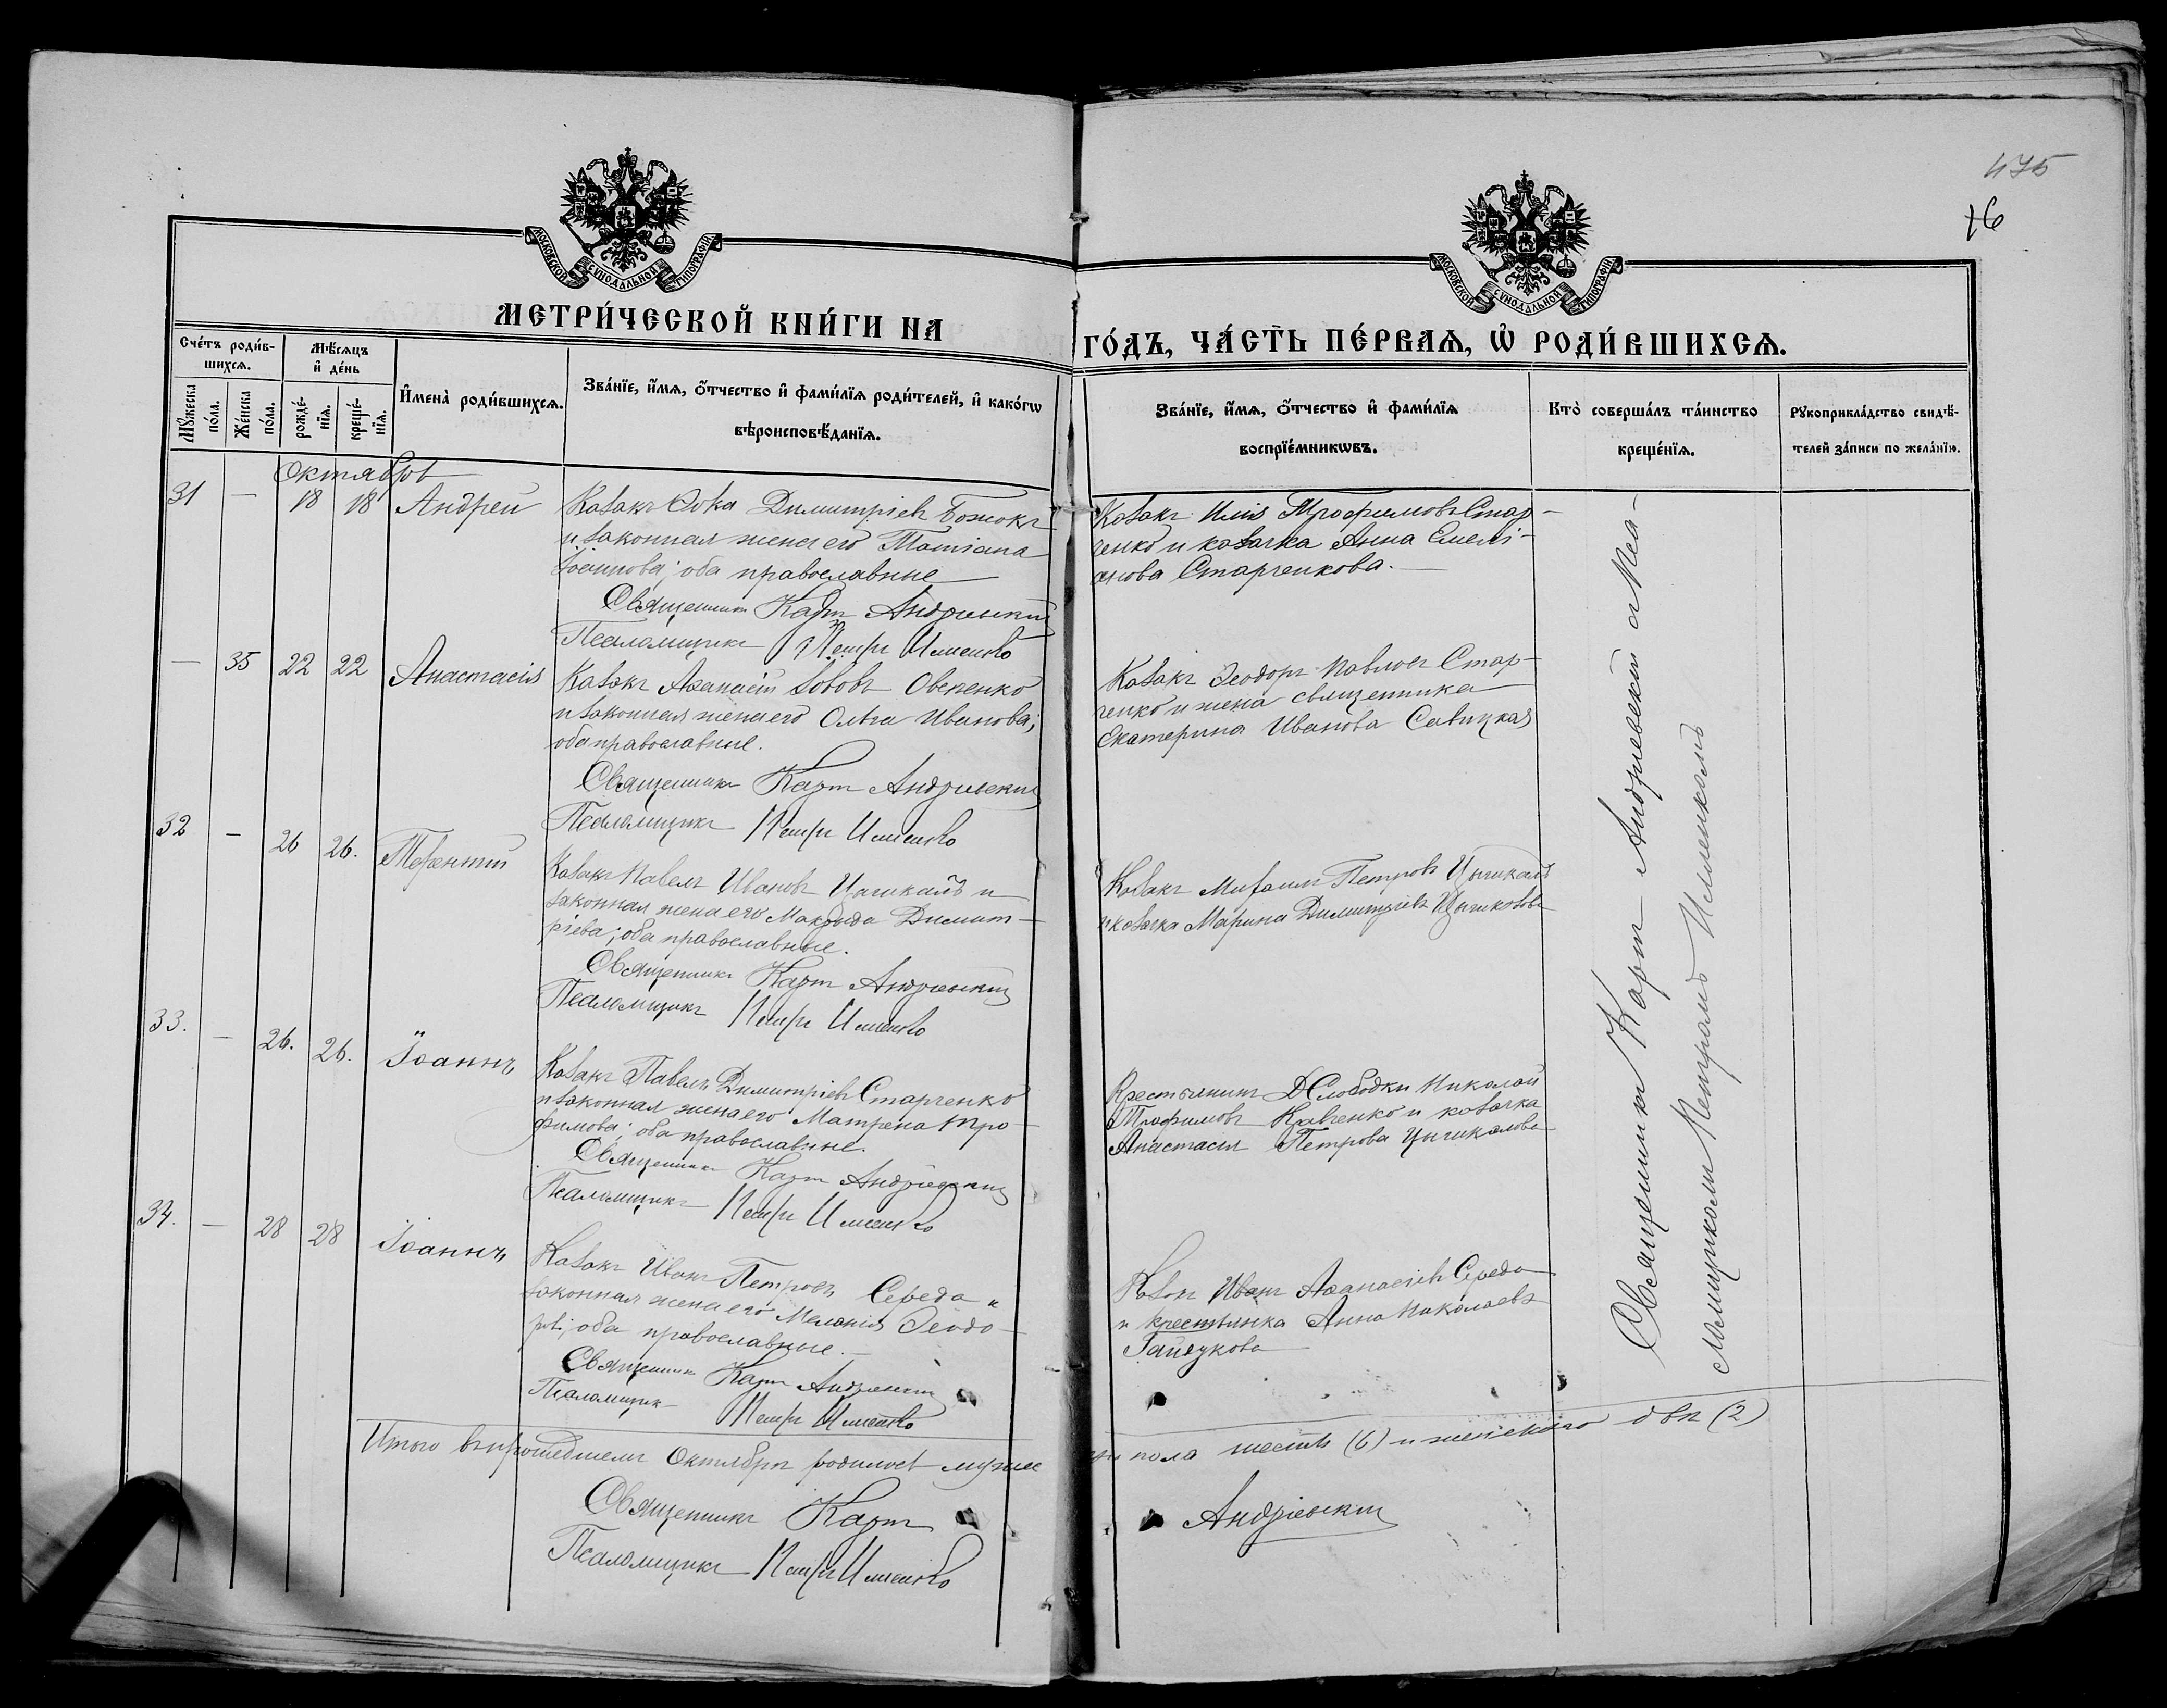 475
76
МОСКОВСКОЙ СѴНОДАЛЬНОЙ ТИПОГРАФІИ
МОСКОВСКОЙ СѴНОДАЛЬНОЙ ТИПОГРАФІИ
МЕТРИ́ЧЕСКОЙ КНИ́ГИ НА
ГО́ДЪ, ЧА́СТЬ ПЕ́РВАѦ, Ѡ҆ РОДИ́ВШИХСѦ.
Сче́тъ роди́в-
шихсѧ.
Мꙋ́жеска по́ла.
Же́нска по́ла.
Мѣ́сѧцъ
и҆ де́нь
рожде́-
нїѧ.
креще́-
нїѧ.
И҆мена̀ роди́вшихсѧ.
Зва́нїе, и҆́мѧ, ѻ҆́тчество и҆ фами́лїѧ роди́телей, и҆ како́гѡ
вѣроисповѣ́данїѧ.
Зва́нїе, и҆́мѧ, ѻ҆́тчество и҆ фами́лїѧ
воспрїе́мникѡвъ.
Кто̀ соверша́лъ та́инство
креще́нїѧ.
Рꙋкоприкла́дство свидѣ́-
телей за́писи по жела́нїю.
Октябрь
31 — 18 18 Андрей
Козакъ Ѳока Димитріевъ Божокъ
и законная жена его Татіана
Іоаннова; оба православные
Священникъ Карпъ Андріевскій
Псаломщикъ Петръ Ильенко
Козакъ Илія Трофимовъ Стар-
ченко и козачка Анна Емелі-
анова Старченкова.
— 35 22 22 Анастасія
Козакъ Аѳанасій Ововъ
и законная жена его Ольга Иванова;
оба православные.
Священникъ Карпъ Андріевскій
Псаломщикъ Петръ Ильенко
Козакъ Ѳеодоръ Павловъ Стар-
ченко и жена священника
Екатерина Иванова Савицкая
32 — 26 26. Терентій
Козакъ Павелъ Ивановъ Цыгикалъ и
законная жена его Макрида Димит-
ріева; оба православные.
Священникъ Карпъ Андріевскій
Псаломщикъ Петръ Ильенко
Козакъ Михаилъ Петровъ Цыгикалъ
и козачка Марина Димитріева Цыгикалова
33. — 26. 26. Іоаннъ
Козакъ Павелъ Димитріевъ Старченко
и законная жена его Матрена Тро-
фимова; оба православные.
Священникъ Карпъ Андріевскій
Псаломщикъ Петръ Ильенко
Крестьянинъ Д Слободки Николай
Трофимовъ Кравченко и козачка
Анастасія Петрова Цыгикалова
34. — 28 28 Іоаннъ
Козакъ Иванъ Петровъ Середа и
законная жена его Меланія Ѳеодо-
рова; оба православные.
Священникъ Карпъ Андріевскій
Псаломщикъ Петръ Ильенко
Козакъ Иванъ Аѳанасіевъ Середа
и крестьянка Анна Николаева
Гайдукова
Священникъ Карпъ Андріевскій съ Псало-
мщикомъ Петромъ Ильенкомъ
Итого въ прошедшемъ Октябрѣ родилось мужес
каго пола шесть (6) и женскаго двѣ (2)
Священникъ Карпъ Андріевскій
Псаломщикъ Петръ Ильенко